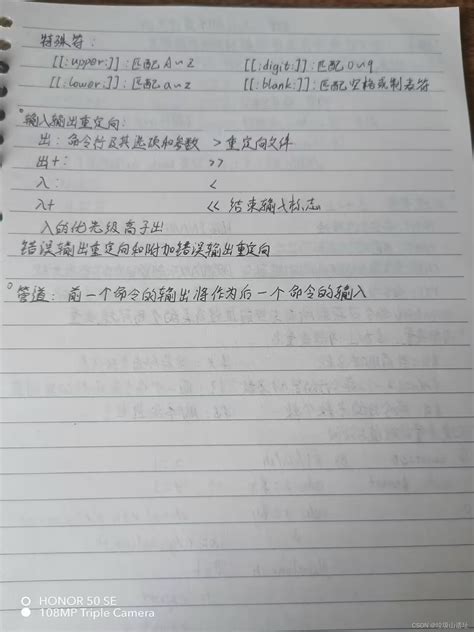 特殊符:
[[:upper:]]:匹配A~Z [[:digit:]]:匹配0~9
[[:lower:]]:匹配a~z [[:blank:]]:匹配空格或制表符
输入输出重定向:
出: 命令行及其选项和参数 > 重定向文件
出+: >>
入: <
入+ << 结束输入标志
入的优先级高于出
错误输出重定向和附加错误输出重定向
管道: 前一个命令的输出将作为后一个命令的输入
HONOR 50 SE
108MP Triple Camera